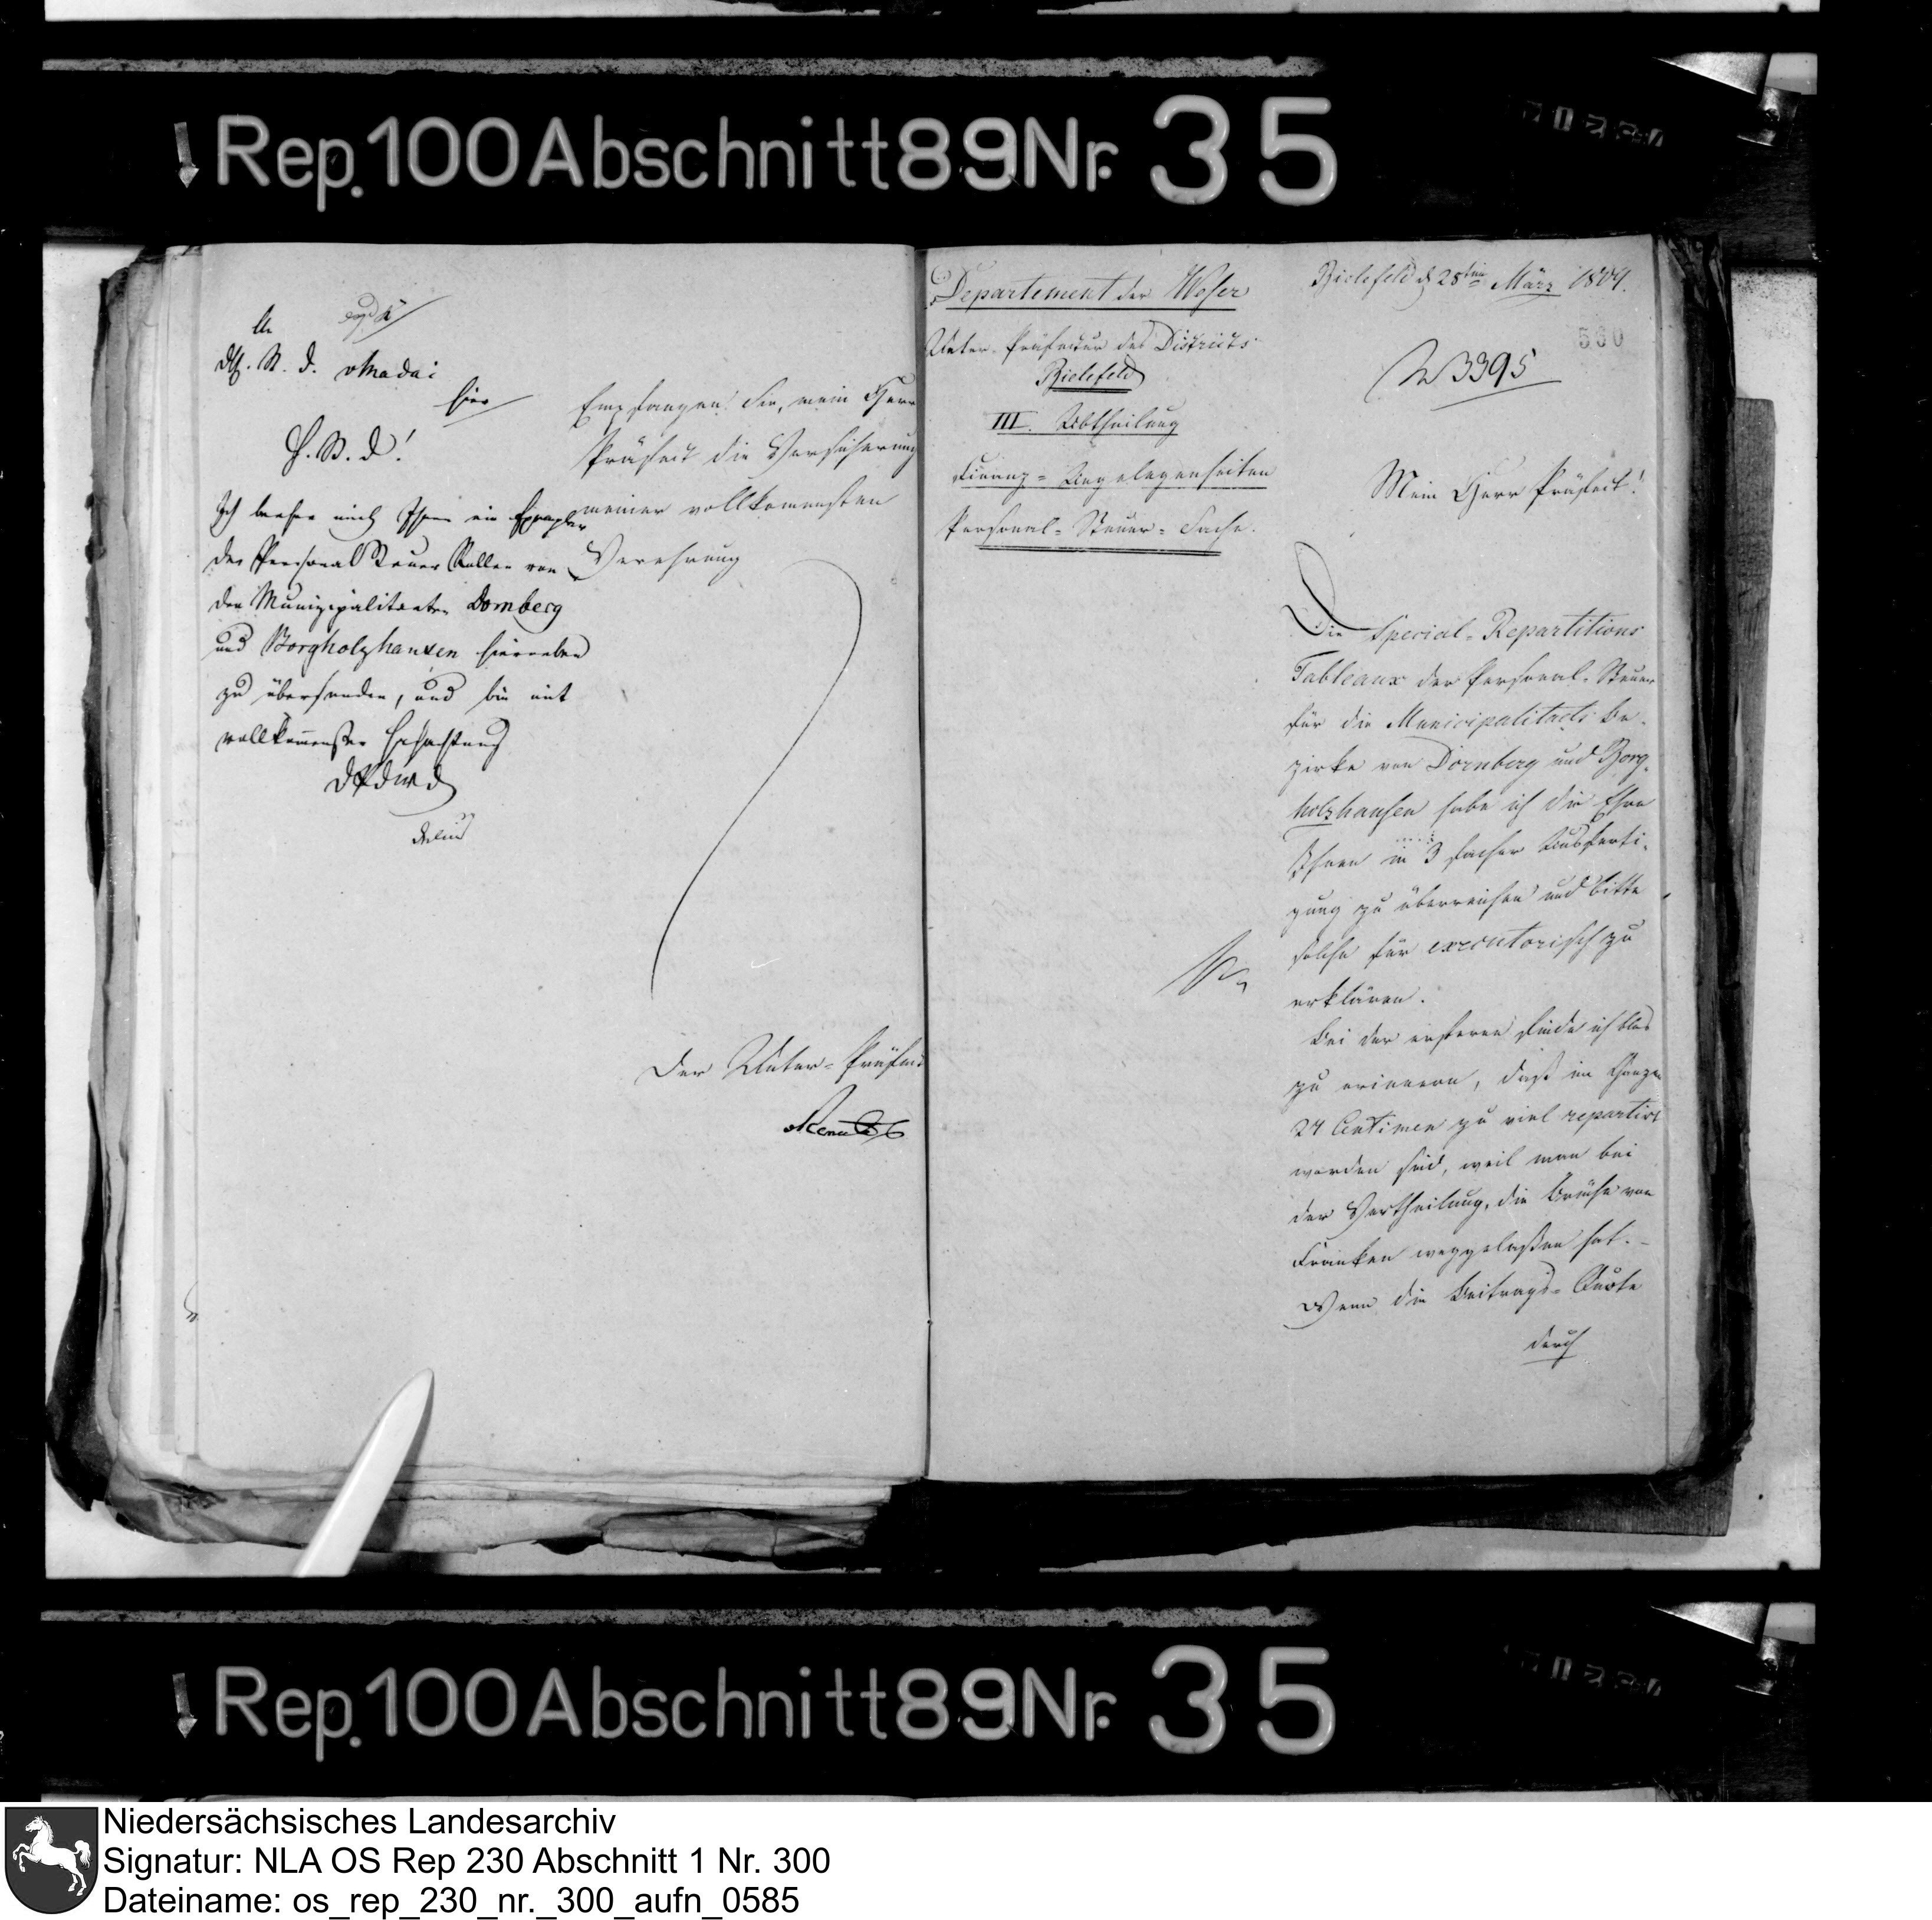 Rep. 100 Abschnitt 89 Nr. 35
An
v Madai
hier
H. St. D!
Ich beehre mich Ihnen ein Exemplar
der Personal Steuer Rollen von
den Munizipalitaeten Dornberg
und Borgholzhausen hierneben
zu übersenden, und bin mit
vollkommenster Hochachtung
DPdWD
Delius
Empfangen Sie, mein Herr
Präfect die Versicherung
meiner vollkomensten
Verehrung
Der Unter-Präfect
Departement der Weser
Unter-Präfectur des Districts
Bielefeld
III. Abtheilung
Finanz-Angelegenheiten
Personal-Steuer-Sache.
Bielefeld d 28ten März 1809.
530
N 3395
Mein Herr Präfect!
Die Special-Repartitions
Tableaux der Personal-Steuer
für die Municipalitaets Be-
zirke von Dornberg und Borg-
holzhausen habe ich die Ehre
Ihnen in 3 facher Ausferti-
gung zu überreichen und bitte
solche für executorisch zu
erklären.
Bei der ersteren finde ich blos
zu erinnern, daß im Ganzen
24 Centimen zu viel repartirt
worden sind, weil man bei
der Vertheilung, die Brüche von
Franken weggelaßen hat. -
Wenn die Beitrags-Quote
durch
Rep. 100 Abschnitt 89 Nr. 35
Niedersächsisches Landesarchiv
Signatur: NLA OS Rep 230 Abschnitt 1 Nr. 300
Dateiname: os_rep_230_nr._300_aufn_0585